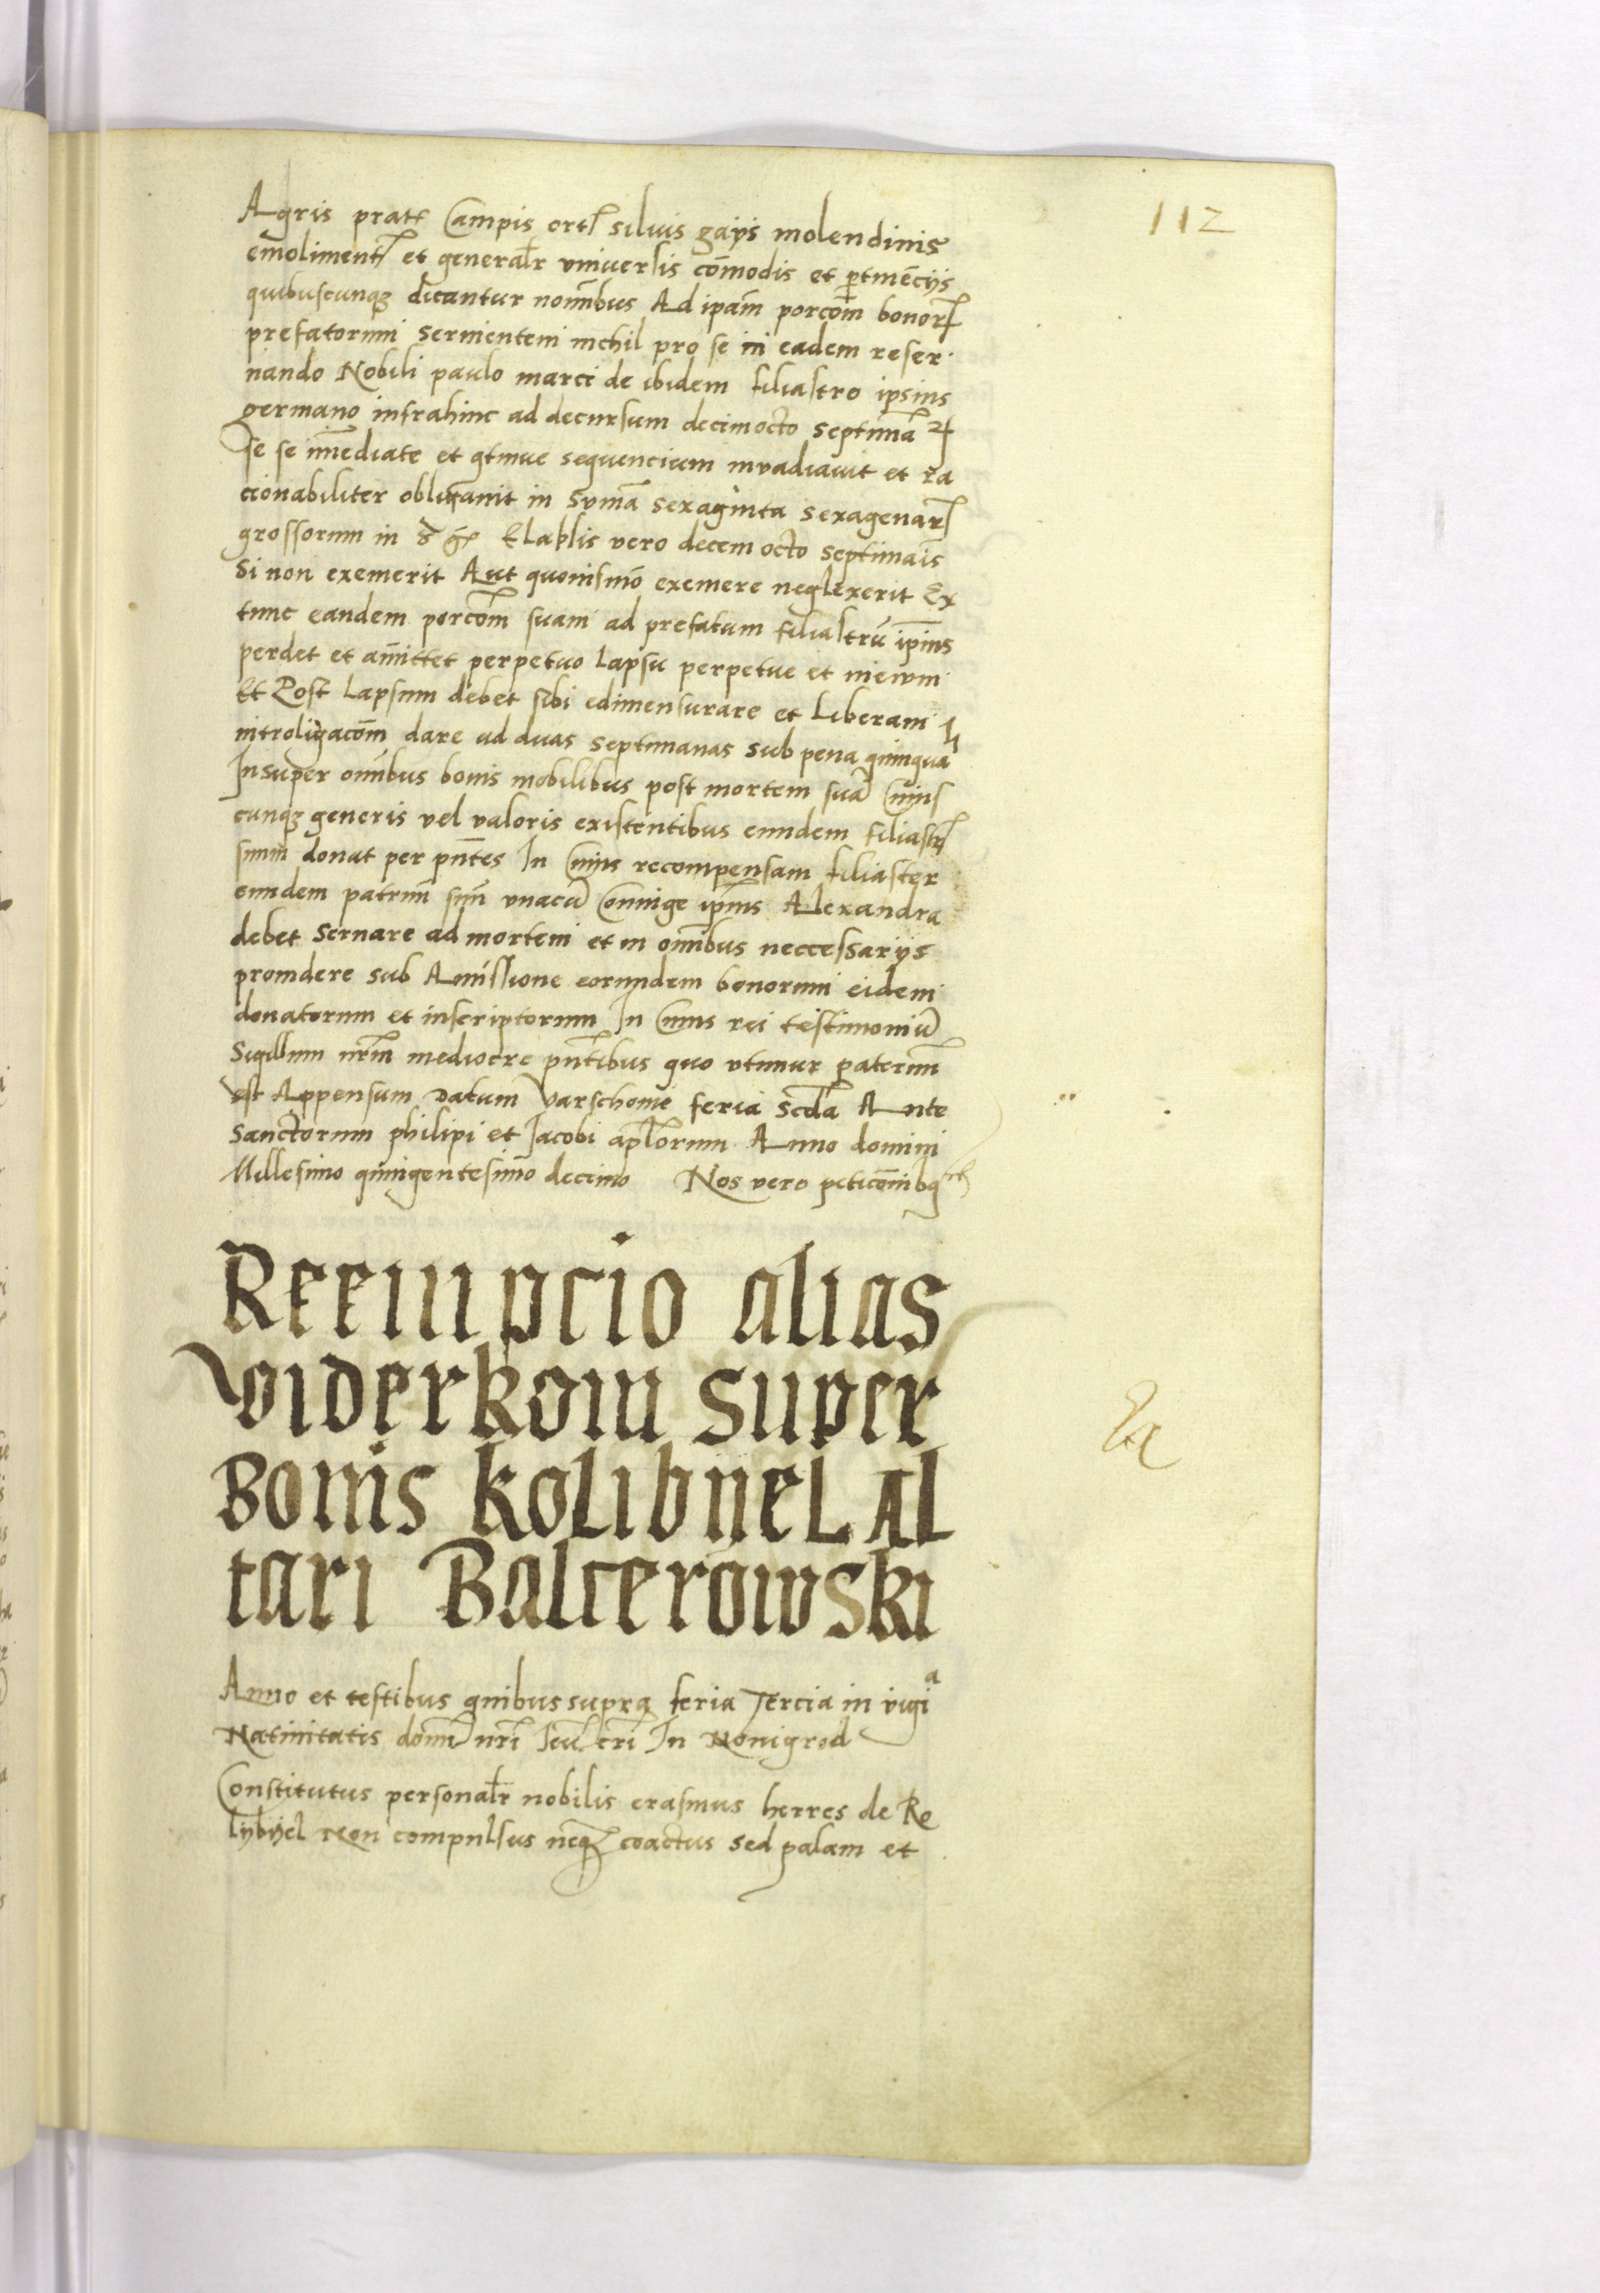 112
Agris prat Campis ort silvis gays molendinis
emoliment et generalr vniversis comodis et ptinēcijs
quibuscunqz dicantur nominibus Ad ipam porcom bonor
prefatorum serviente nichil pro se in eadem reser
vando Nobili paulo marci de ibidem filiastro ipsius
germano infrahinc ad decursum decimocto septima
se se imediate et gtinue sequencium invadiavit et ra
cionabiliter obligavit in Suma sexaginta sexagenar
grossorum in Elapsis vero decem octo septimais
Si non exemerit Aut quovismo exemere neglexerit Ex
tunc eandem porcom suam ad prefatum filiastru ipius
perdet et amittet perpetuo lapsu perpetue et in ewm
Et Post lapsum debet sibi edimensurare et liberam
introligacom dare ad duas septimanas sub pena quinqua
Insuper omibus bonis mobilibus post mortem sua Cuius
cunqz generis vel valoris existentibus eundem filiastr
suum donat per pntes In Cuius recompensam filiaster
eundem patruu suu vnacu Coniuge ipius Alexandra
debet servare ad mortem et in omibus neccessarijs
providere sub Amissione eorundem bonorum eidem
donatorum et inscriptorum In Cuius rei testimoniu
Sigillum nrm mediocre pntibus quo vtimur paternu
est Appensum Datum Varschovie feria scda Ante
Sanctorum philipi et Jacobi aplorum Anno domini
Millesimo quingentesimo decimo Nos vero peticoibq etc
Reempcio alias
viderkom super
Bonis kolibyel Al
tari Balcerowski
Anno et testibus quibus supra feria Tercia in vigia
Nativitatis domi nri Jeu cri In Novigrod
Constitutus personalr nobilis erasmus herres de Ko
lybyel Non compulsus neqz coactus sed palam et